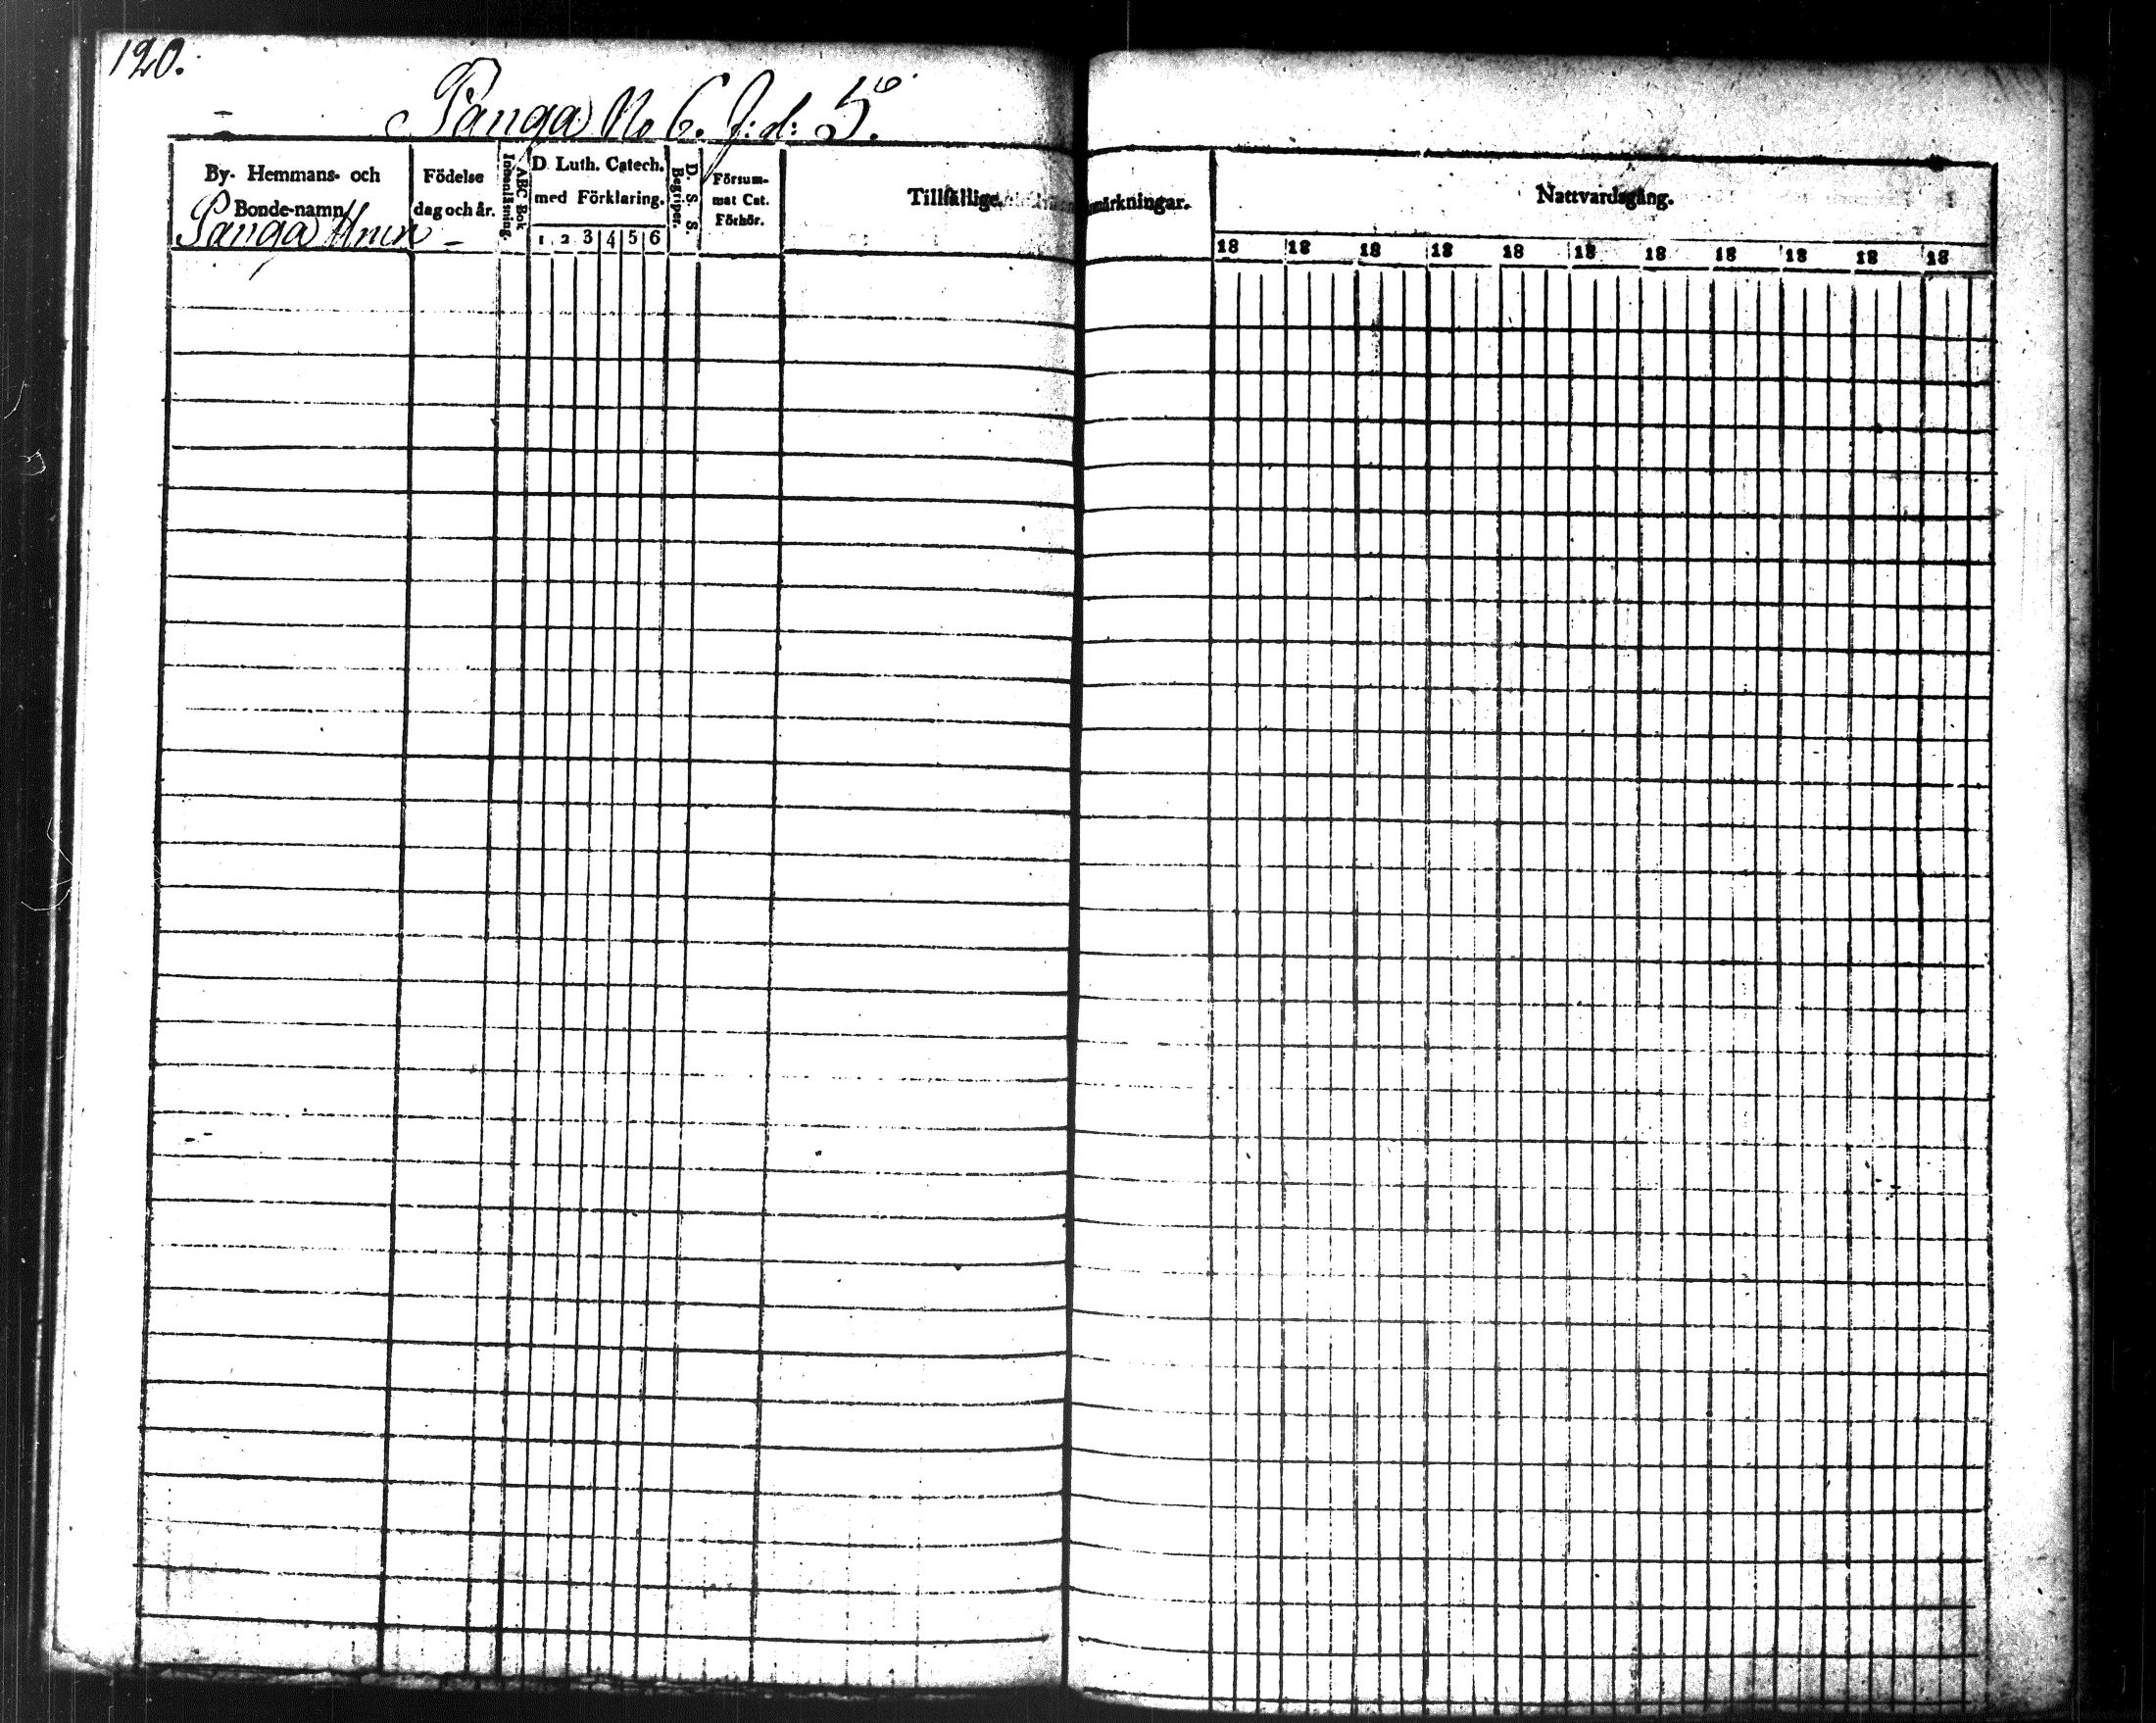 120.
Panga No 6. f: d: 5.
By- Hemmans- och
Bonde-namn
Panga
Födelse
dag och år.
Innenläsning.
ABC Bok
D. Luth. Catech.
med Förklaring.
1 2 3 4 5 6
Begriper.
D. S. S.
Försum-
mat Cat.
Förhör.
Tillfällige
märkningar.
Nattvardsgång.
18 18 18 18 18 18 18 18 18 18 18